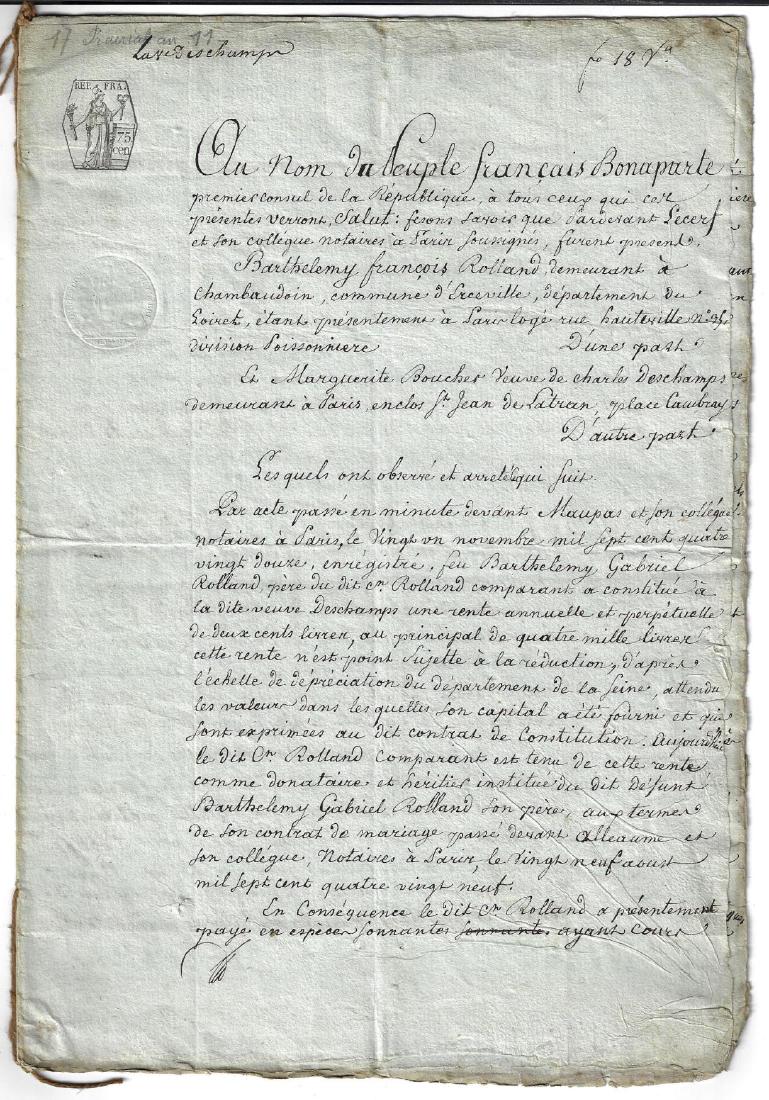 17 Prairial an 11
La Ve Deschamps
fo 18 Va
REP. FRA.
75
cen
Au Nom du Peuple français Bonaparte
premier consul de la République, à tous ceux qui ces
présentes verront, Salut: fesons savoir que Pardevant Lecerf
et son collégue notaires à Paris soussignés, furent présent.
Barthelemy françois Rolland, demeurant à
Chambaudoin, commune d'Erceville, département du
Loiret, étant présentement à Paris logé rue hauteville n°
division Poissonniere D'une part
Et Marguerite Boucher Veuve de charles Deschamps
demeurant à Paris, enclos St. Jean de Latran, place Cambray
D'autre part
Les quels ont observé et arreté qui suit.
Par acte passé en minute devant Maupas et son collégue
notaires à Paris, le Vingt un novembre mil sept cent quatre
vingt douze, enregistré, feu Barthelemy Gabriel
Rolland, père du dit cn. Rolland comparant a constitué à
la dite veuve Deschamps une rente annuelle et perpétuelle
de deux cents livres, au principal de quatre mille livres
cette rente n'est point Sujette à la réduction, d'après
l'échelle de dépréciation du département de la Seine, attendu
les valeurs dans les quelles son capital a été fourni et qui
sont exprimées au dit contrat de Constitution. Aujourd'hui
le dit Cn. Rolland Comparant est tenu de cette rente
comme donataire et héritier institué du dit Défunt
Barthelemy Gabriel Rolland son père, aux termes
de son contrat de mariage passé devant Alleaume et
son collégue, Notaires à Paris, le Vingt neuf aoust
mil sept cent quatre vingt neuf.
En Conséquence le dit Cn. Rolland a présentement
payé en espèces sonnantes sonnantes ayant cours